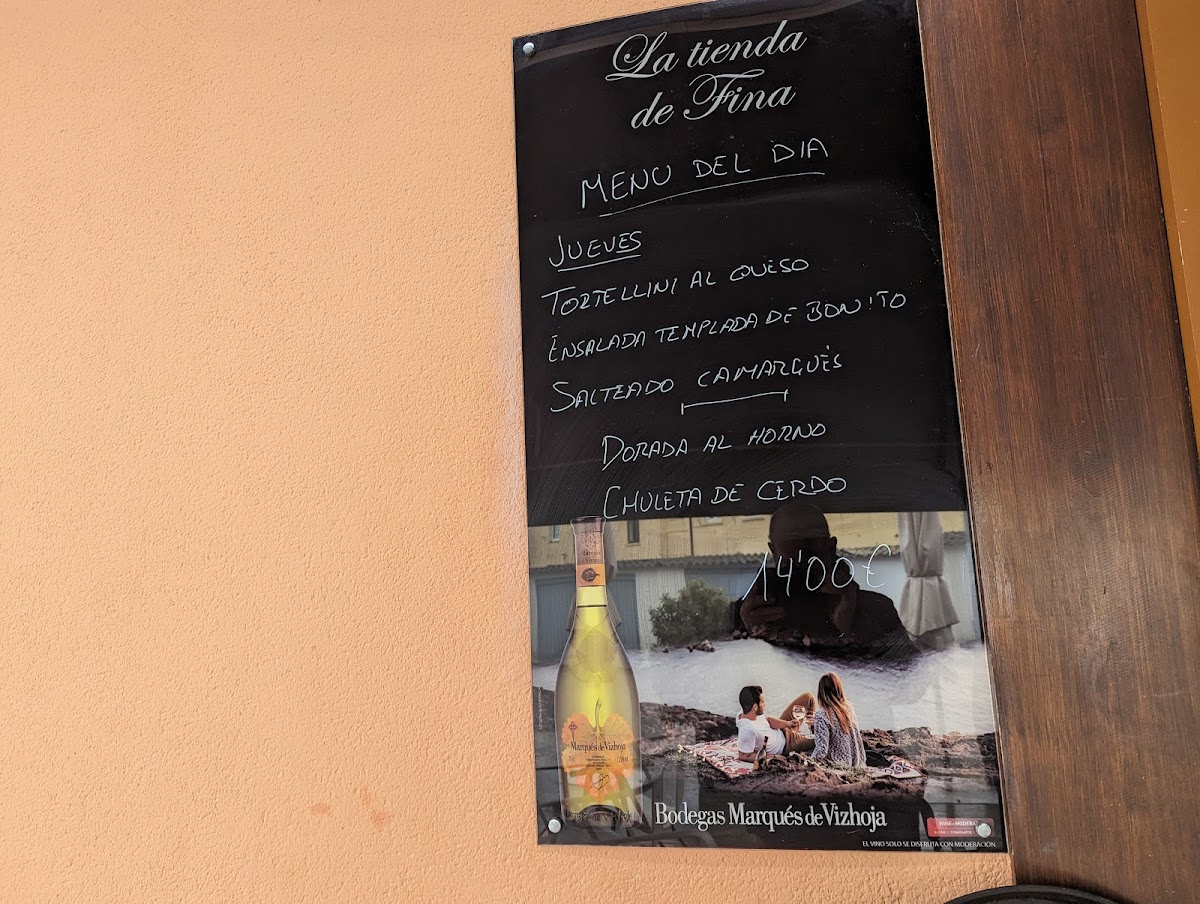 La tienda
de Fina
MENU DEL DIA
JUEVES
TORTELLINI AL QUESO
ENSALADA TEMPLADA DE BONITO
SALTEADO CAMARGUÉS
DORADA AL HORNO
CHULETA DE CERDO
14'00€
Marqués de Vizhoja
Bodegas Marqués de Vizhoja
EL VINO SOLO SE DISFRUTA CON MODERACIÓN